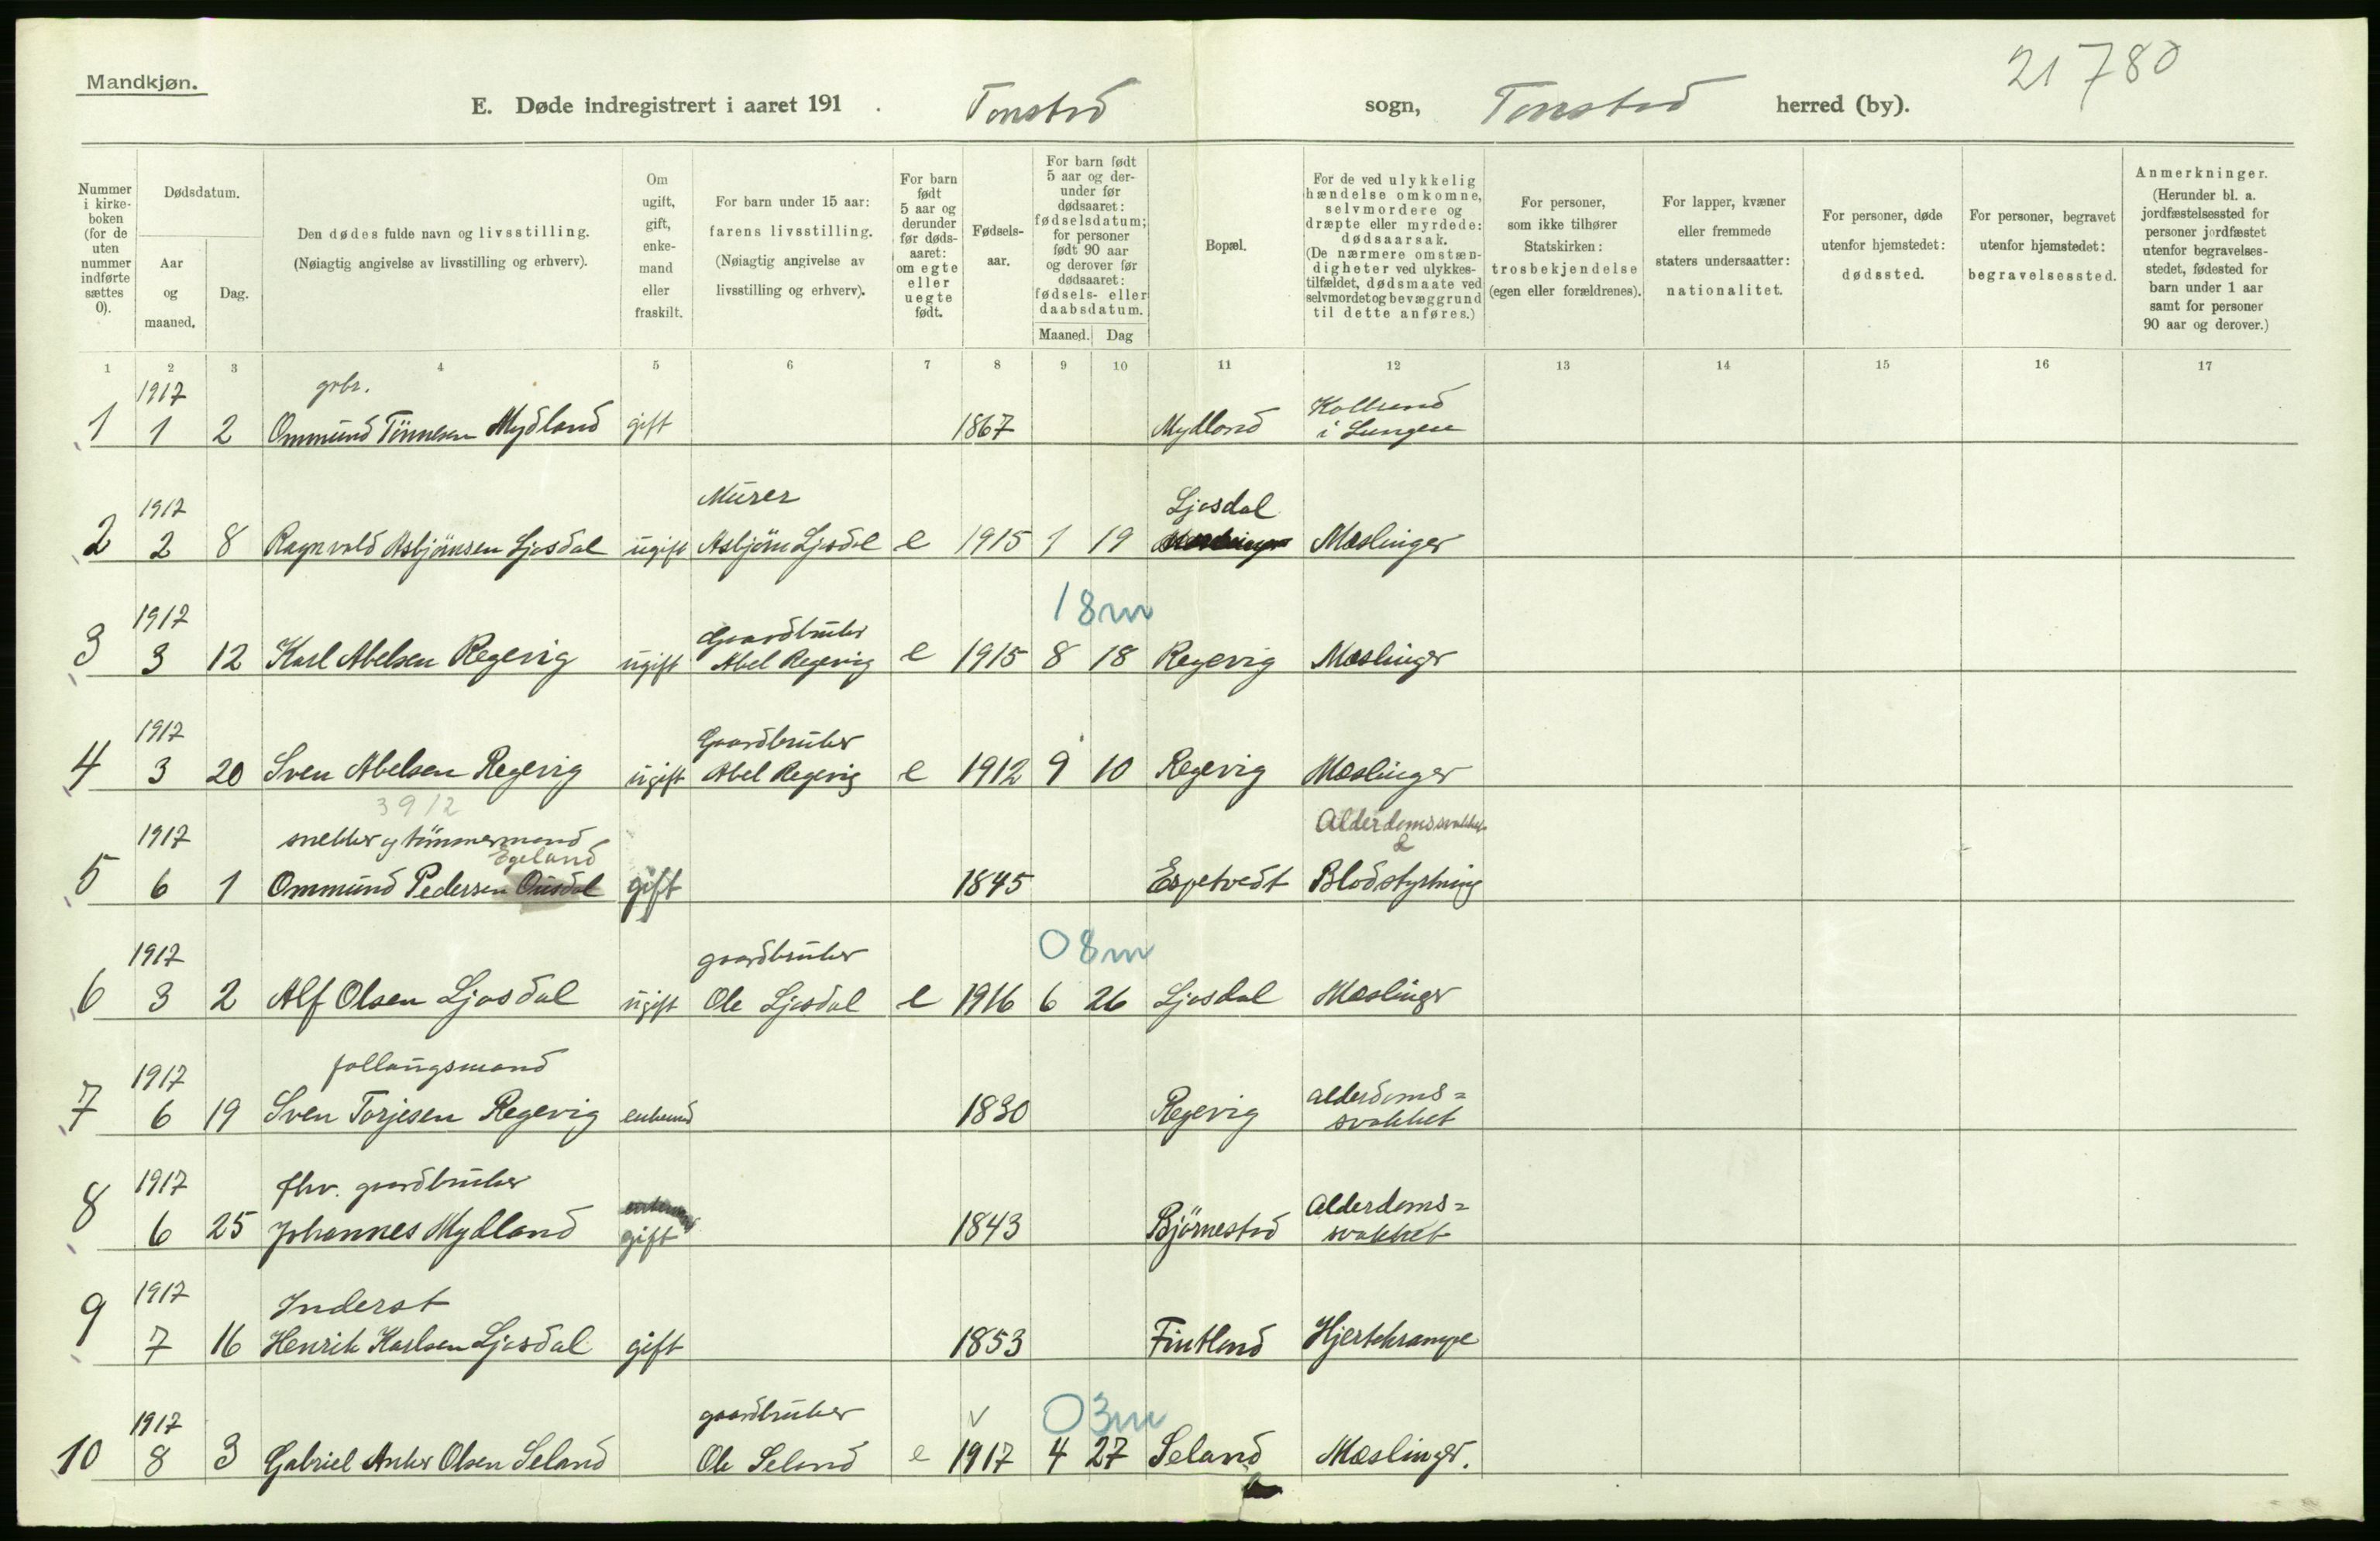 Mandkjøn.
21780
E. Døde indregistrert i aaret 191 . Tonstad sogn, Tonstad herred (by).
Nummer i kirke-boken (for de uten nummer indførte sættes 0).
Dødsdatum.
Aar og maaned.
Dag.
Den dødes fulde navn og livsstilling.
(Nøiagtig angivelse av livsstilling og erhverv).
Om ugift, gift, enke-mand eller fraskilt.
For barn under 15 aar: farens livsstilling.
(Nøiagtig angivelse av livsstilling og erhverv).
For barn født 5 aar og derunder før døds-aaret: om egte eller uegte født.
Fødsels-aar.
For barn født 5 aar og der-under før dødsaaret: fødselsdatum; for personer født 90 aar og derover før dødsaaret: fødsels- eller daabsdatum.
Maaned. Dag
Bopæl.
For de ved ulykkelig hændelse omkomne, selvmordere og dræpte eller myrdede: dødsaarsak.
(De nærmere omstæn-digheter ved ulykkes-tilfældet, dødsmaate ved selvmordet og bevæggrund til dette anføres.)
For personer, som ikke tilhører Statskirken: trosbekjendelse (egen eller forældrenes).
For lapper, kvæner eller fremmede staters undersaatter: nationalitet.
For personer, døde utenfor hjemstedet: dødssted.
For personer, begravet utenfor hjemstedet: begravelsessted.
Anmerkninger.
(Herunder bl. a. jordfæstelsessted for personer jordfæstet utenfor begravelses-stedet, fødested for barn under 1 aar samt for personer 90 aar og derover.)
1 2 3 4 5 6 7 8 9 10 11 12 13 14 15 16 17
1917 grbr.
1 1 2 Ommund Tönnesen Mydland gift 1867 Mydland Koldbrand i Lungen
1917 Murer Ljosdal
2 2 8 Ragnvald Asbjörnsen Ljosdal ugift Asbjörn Ljosdal e 1915 1 19 Mæslinger
1917 Gaardbruker 18m
3 3 12 Karl Abelsen Regevig ugift Abel Regevig e 1915 8 18 Regevig Mæslinger
1917 Gaardbruker
4 3 20 Sven Abelsen Regevig ugift Abel Regevig e 1912 9 10 Regevig Mæslinger
3912
1917 snekker og tömmermand Alderdomssvakhet &
Egeland
5 6 1 Ommund Pedersen Ousdal gift 1845 Espetvedt Blodstyrtning
1917 gaardbruker 08m
6 3 2 Alf Olsen Ljosdal ugift Ole Ljosdal e 1916 6 26 Ljosdal Mæslinger
1917 follaugsmand
7 6 19 Sven Torjesen Regevig enkemd 1830 Regevig alderdoms= svakhet
1917 fhv. gaardbruker
8 6 25 Johannes Mydland gift 1843 Björnestad Alderdoms= svakhet
1917 Inderst
9 7 16 Henrik Karlsen Ljosdal gift 1853 Fintland Hjertekrampe
1917 gaardbruker v 03m
10 8 3 Gabriel Anker Olsen Seland Ole Seland e 1917 4 27 Seland Mæslinger.